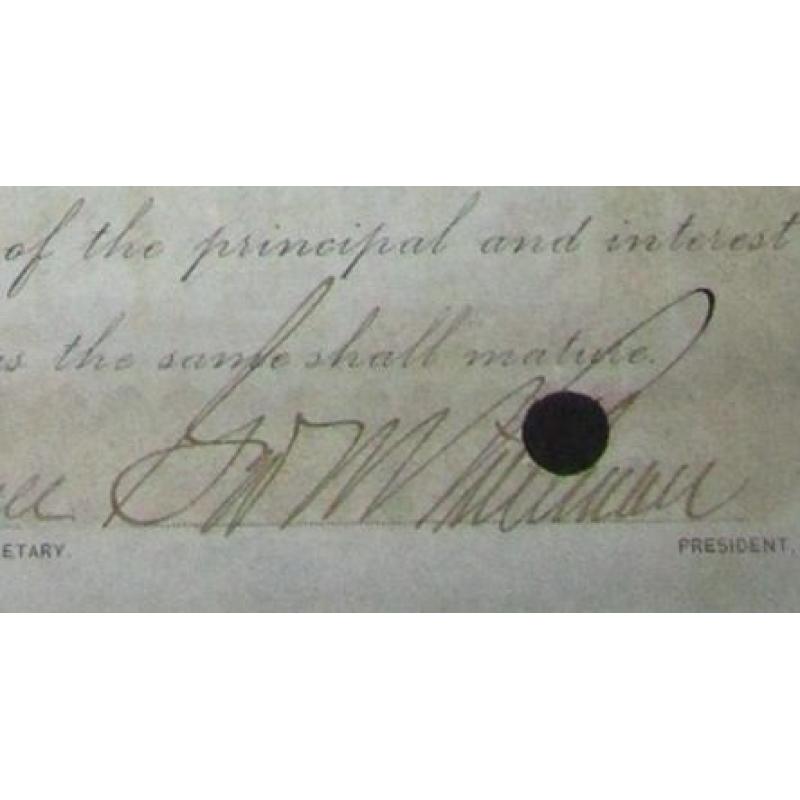 of the principal and interest
as the same shall mature.
Geo M Pullman
ETARY. PRESIDENT.